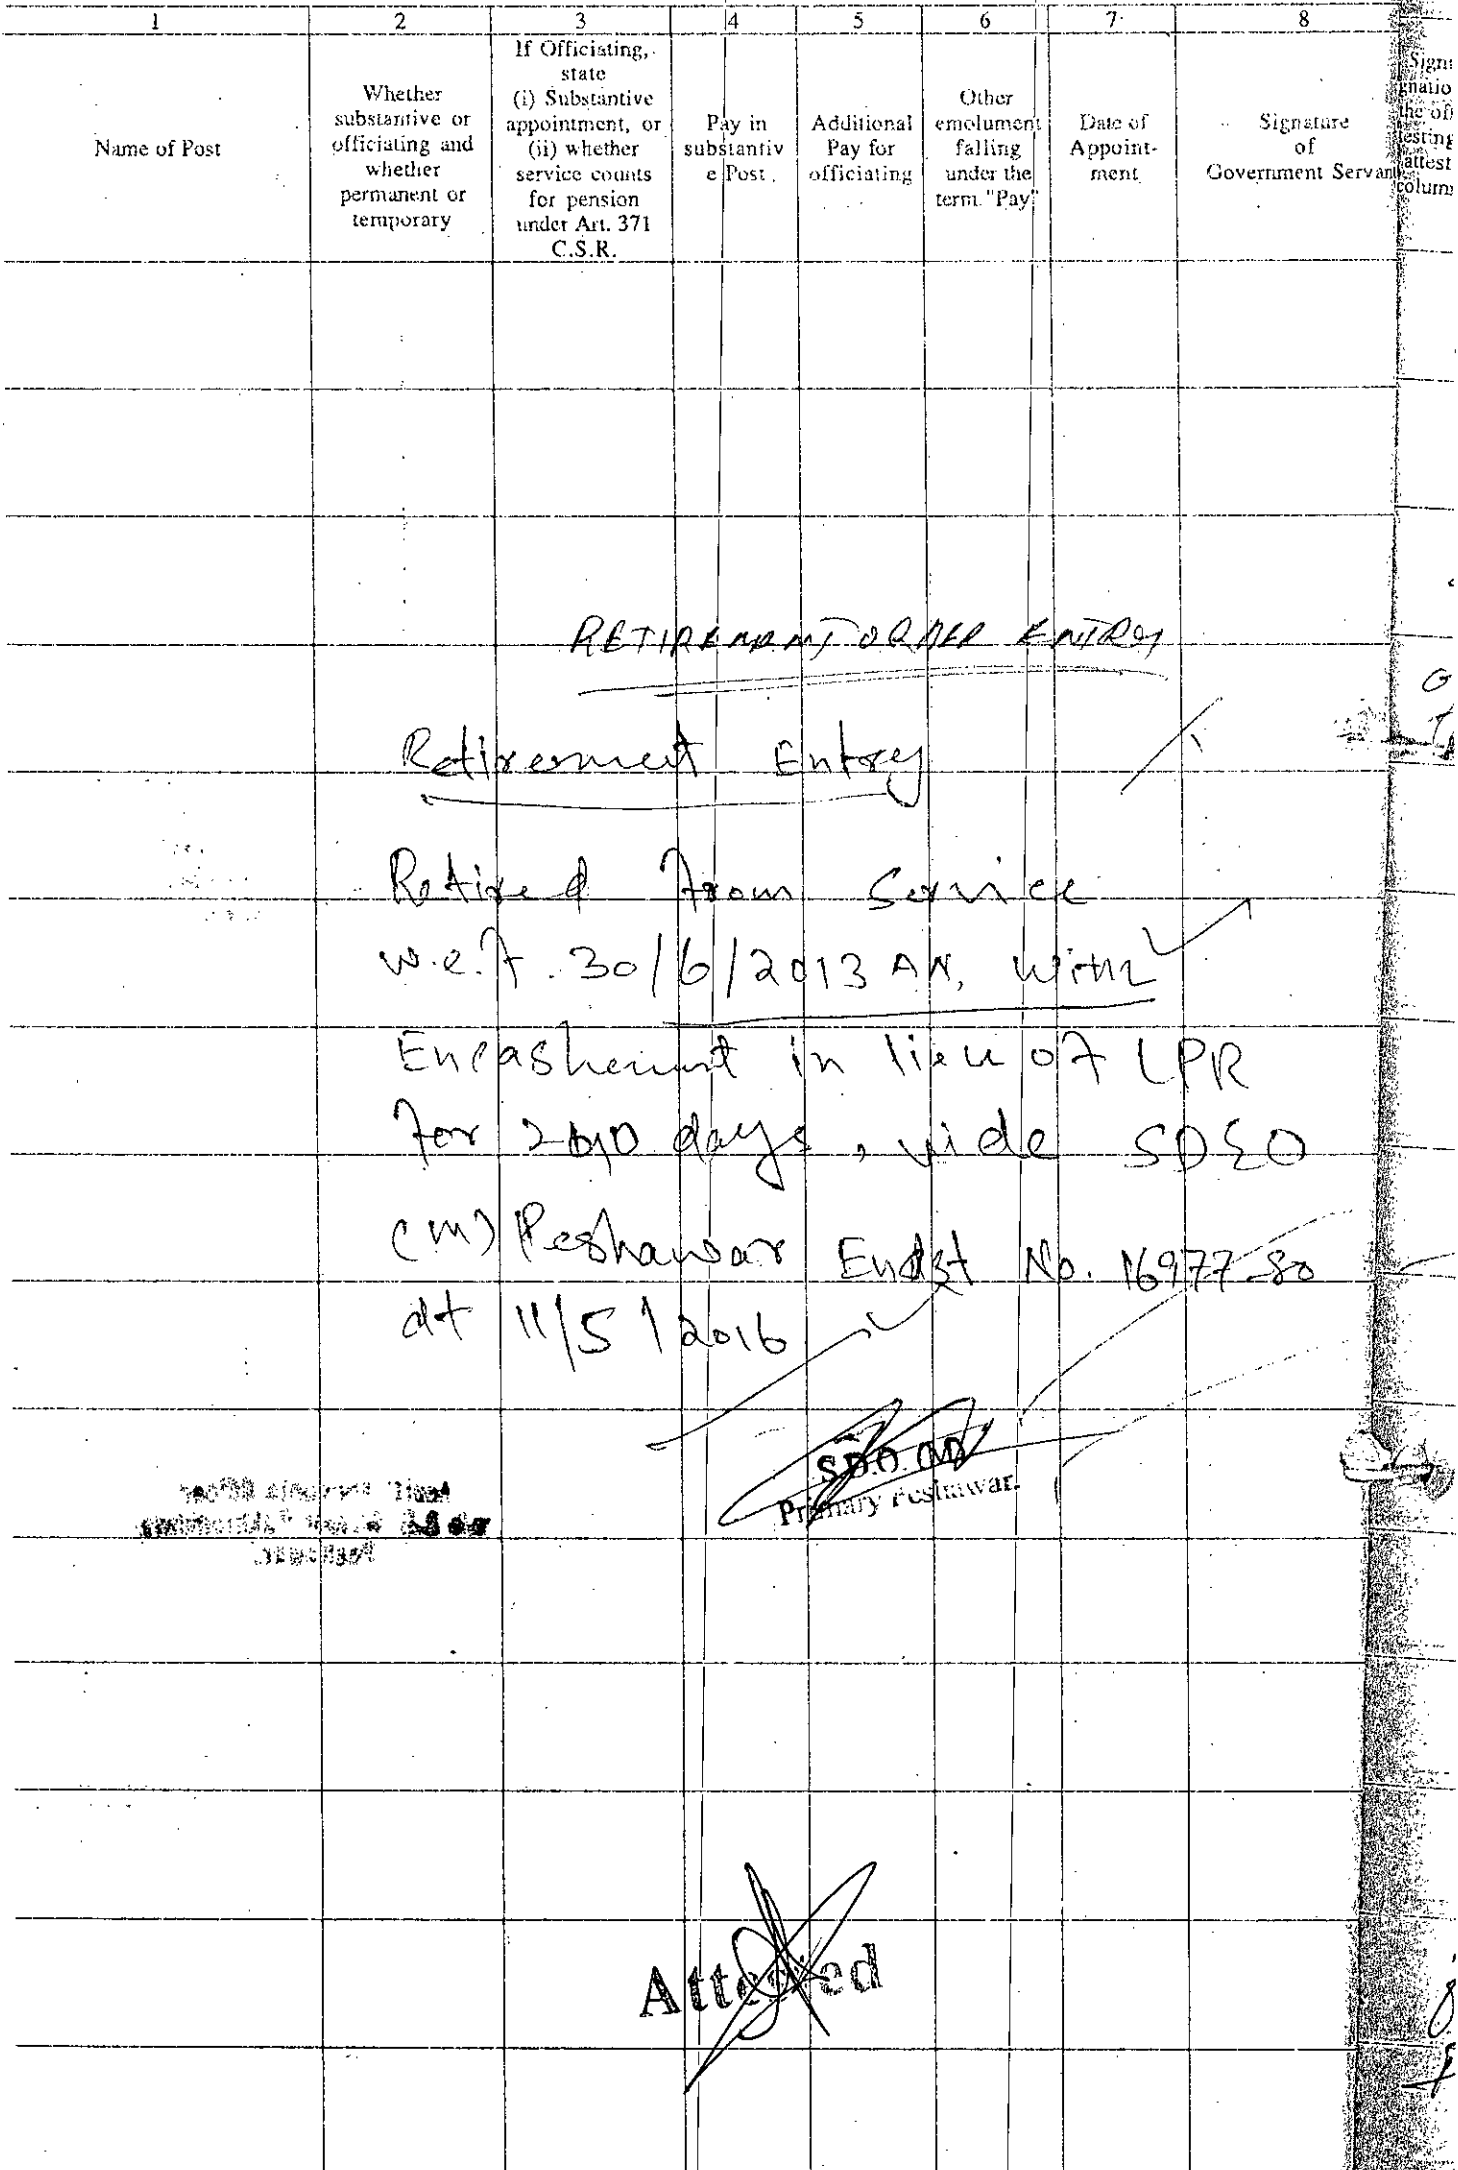 1 2 3 4 5 6 7 8
Name of Post
Whether
substantive or
officiating and
whether
permanent or
temporary
If Officiating,
state
(i) Substantive
appointment, or
(ii) whether
service counts
for pension
under Art. 371
C.S.R.
Pay in
substantiv
e Post
Additional
Pay for
officiating
Other
emolument
falling
under the
term "Pay"
Date of
Appoint-
ment
Signature
of
Government Servan
RETIREMENT ORDER ENTRY
Retirement Entry
Retired from Service
w.e.f. 30/6/2013 AN, with
Encashment in lieu of LPR
for days, vide SDEO
(M) Peshawar Endst No. 16977-80
dt 11/5/2016
S.D.O (M)
Primary Peshawar.
Attested